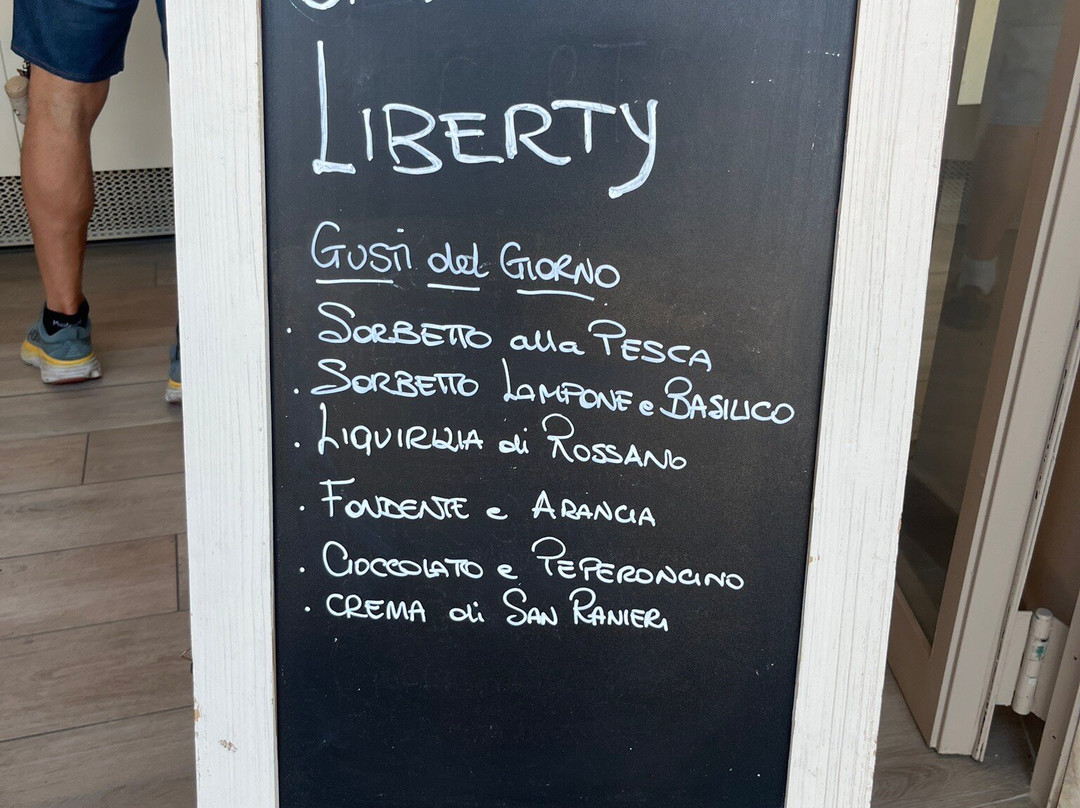 LIBERTY
GUSTI del GIORNO
· SORBETTO alla PESCA
· SORBETTO LAMPONE e BASILICO
· LIQUIRIZIA di ROSSANO
· FONDENTE e ARANCIA
· CIOCCOLATO e PEPERONCINO
· CREMA di SAN RANIERI